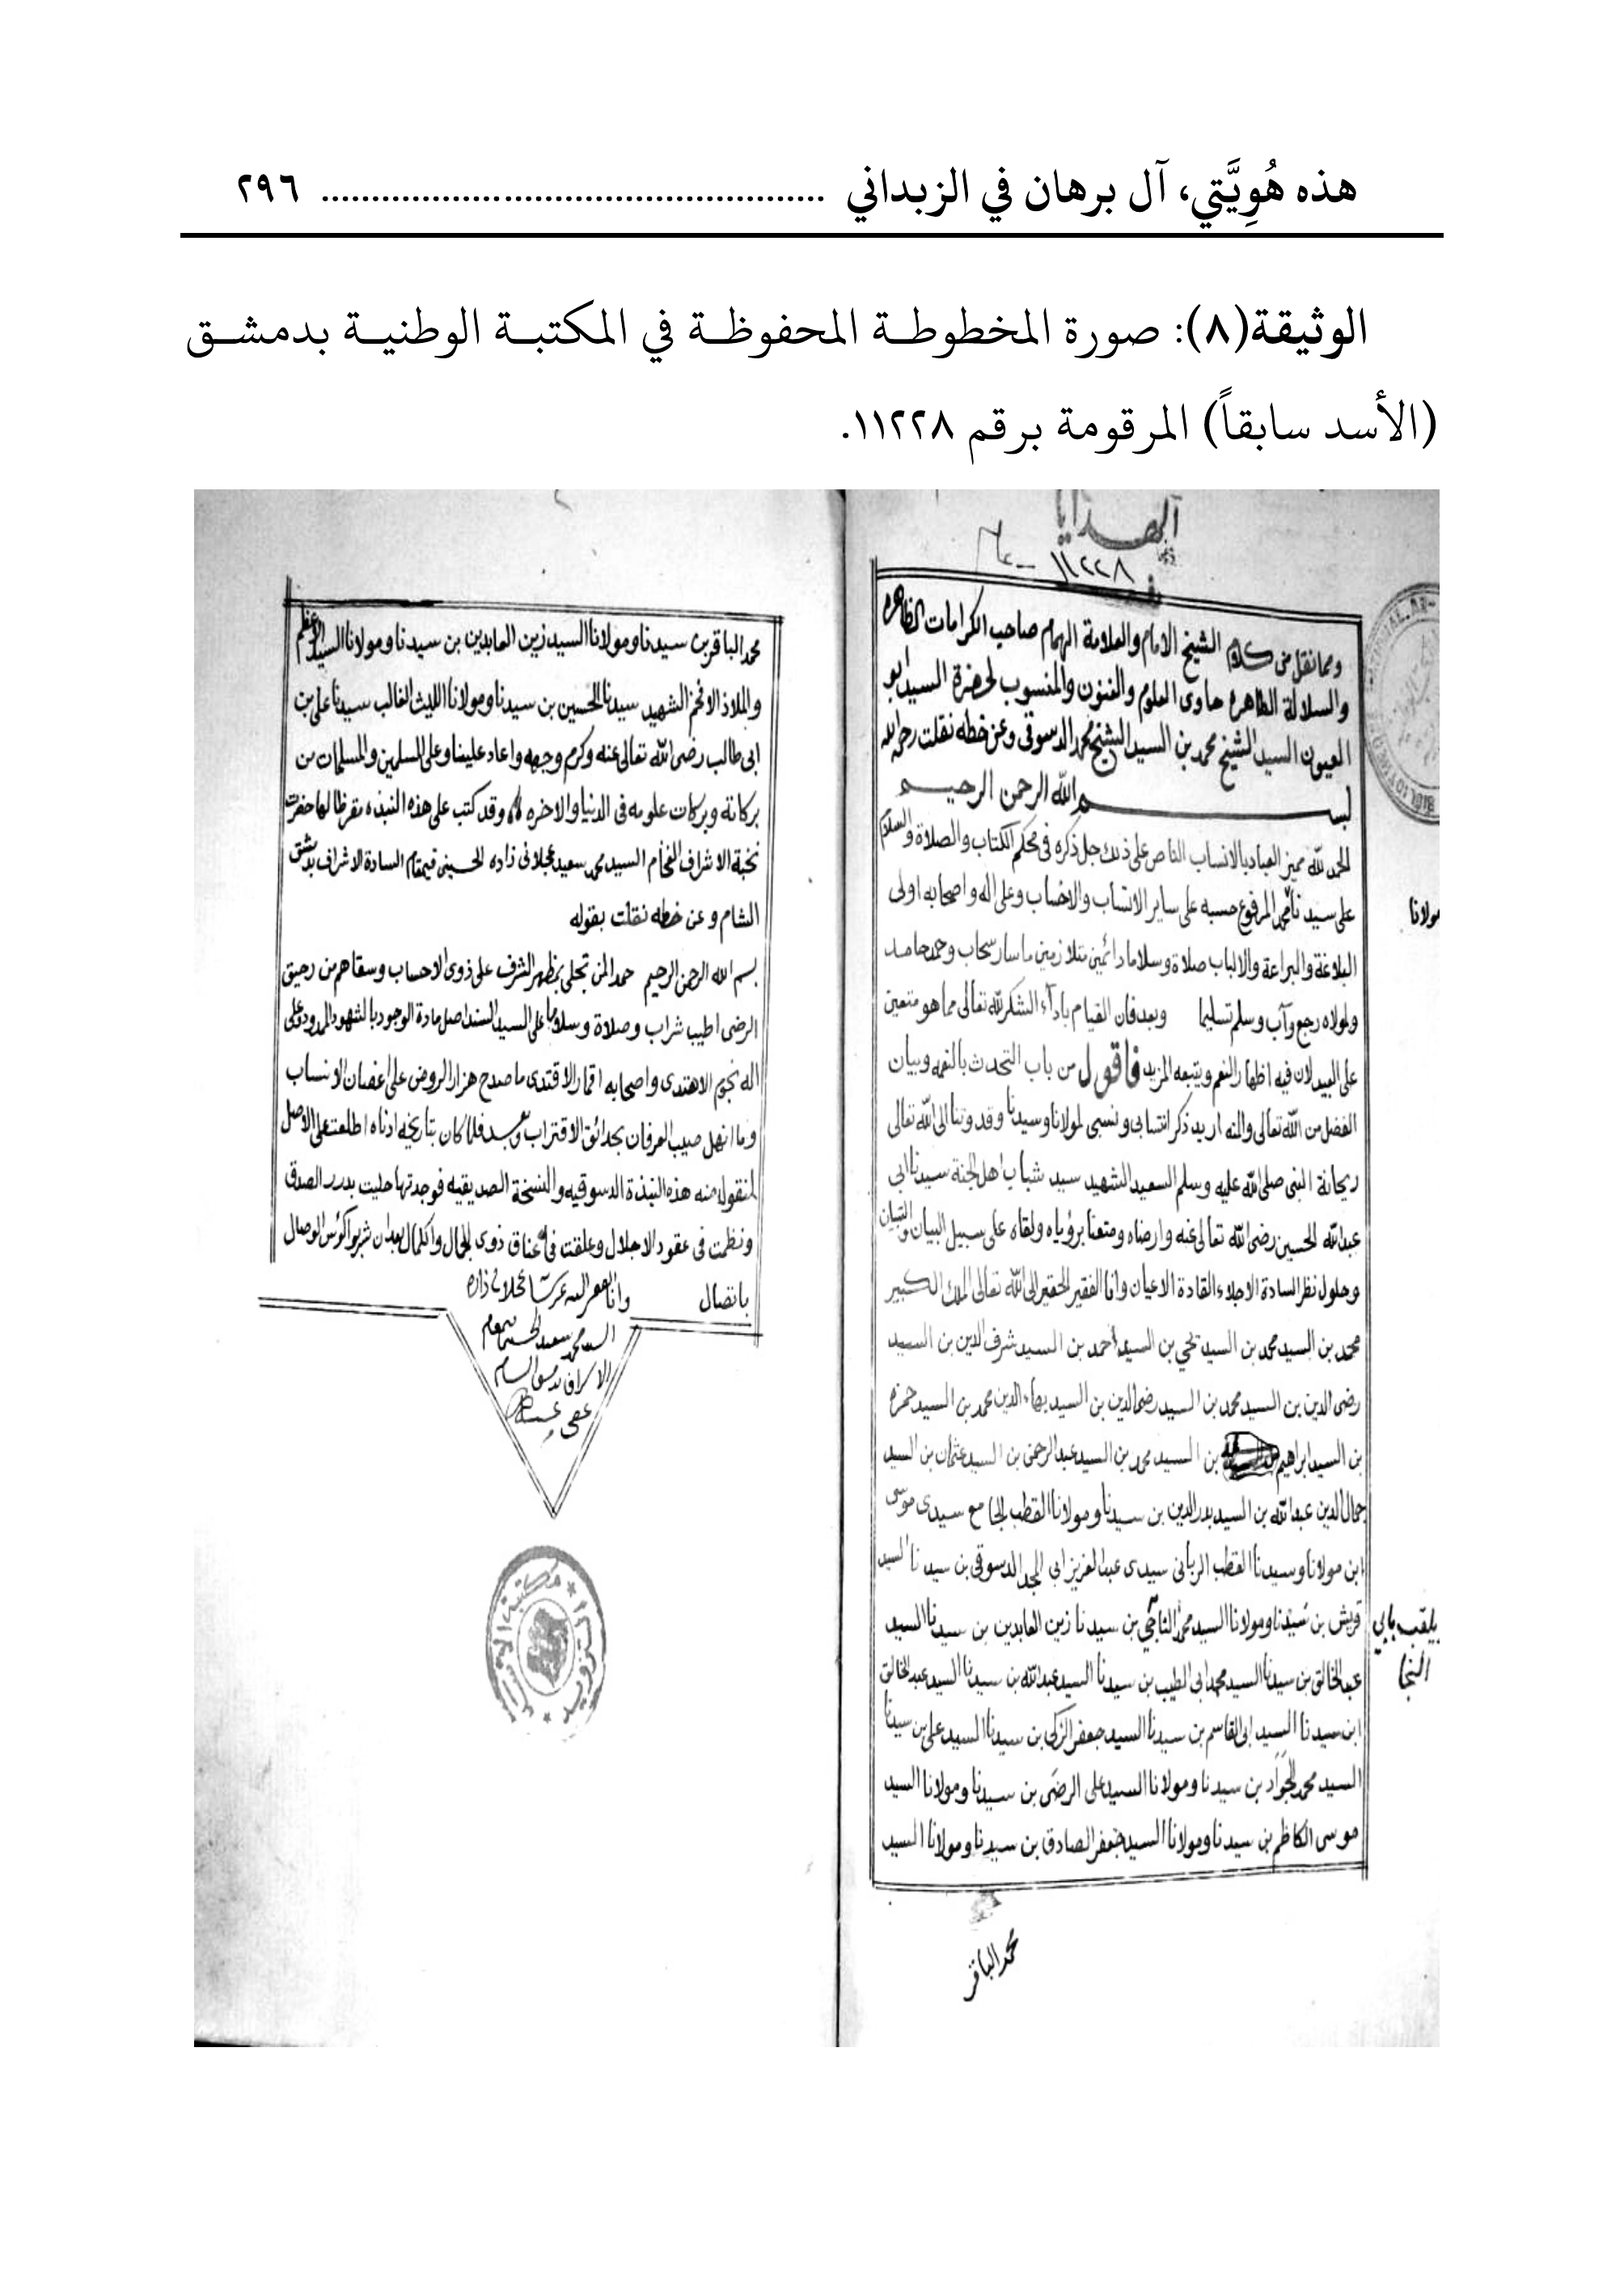 هذه هُوِيَّتي، آل برهان في الزبداني ................................................ ٢٩٦
الوثيقة(٨): صورة المخطوطة المحفوظة في المكتبة الوطنية بدمشق
(الأسد سابقاً) المرقومة برقم ١١٢٢٨.
١١٢٢٨
ومما نقل من كلام الشيخ الامام والعلامة الهمام صاحب الكرامات الظاهره
والسلالة الطاهره حاوى العلوم والفنون والمنسوب لحضرة السيد ابو
العيون السيد الشيخ محمد بن السيد الشيخ محمد الدسوقى وعن خطه نقلت رحمه الله
بسم الله الرحمن الرحيم
الحمد لله مميز العباد بالانساب الناص على ذلك جل ذكره فى محكم الكتاب والصلاة والسلام
على سيدنا محمد المرفوع حسبه على ساير الانساب والاحساب وعلى اله واصحابه اولى
مولانا
البلاغة والبراعة والالباب صلاة وسلاما دائمين متلازمين ما سار سحاب وحمد حامد
ولمولاه رجع وآب وسلم تسليما وبعد فان القيام بادآء الشكر لله تعالى مما هو متعين
على العبد لان فيه اظهار النعم ويتبعه المزيد فاقول من باب التحدث بالنعمه وبيان
الفضل من الله تعالى والته اريد ذكر انتسابى ونسبى لمولانا وسيدنا وقدوتنا الى الله تعالى
ريحانة النبى صلى الله عليه وسلم السعيد الشهيد سيد شباب اهل الجنة سيدنا ابى
عبد الله الحسين رضى الله تعالى عنه وارضاه ومتعنا برؤياه ولقاه على سبيل البيان والتبيان
وحلول نظر السادة الاجلاء القادة الاعيان وانا الفقير الحقير الى الله تعالى الملك الكبير
محمد بن السيد محمد بن السيد يحيى بن السيد احمد بن السيد شرف الدين بن السيد
رضى الدين بن السيد محمد بن السيد رضى الدين بن السيد بهاء الدين محمد بن السيد حمزه
بن السيد ابراهيم بن السيد محمد بن السيد عبد الرحمن بن السيد عثمان بن السيد
جمال الدين عبد الله بن السيد بدر الدين بن سيدنا ومولانا القطب الجامع سيدى موسى
ابن مولانا وسيدنا القطب الربانى سيدى عبد العزيز ابى المجد الدسوقى بن سيدنا السيد
قريش بن سيدنا ومولانا السيد محمد الناجى بن سيدنا زين العابدين بن سيدنا السيد
يلقب بابي
النجا
عبد الخالق بن سيدنا السيد محمد ابى الطيب بن سيدنا السيد عبد الله بن سيدنا السيد عبد الخالق
ابن سيدنا السيد ابى القاسم بن سيدنا السيد جعفر الزكى بن سيدنا السيد على بن سيدنا
السيد محمد الجَوَاد بن سيدنا ومولانا السيد على الرضى بن سيدنا ومولانا السيد
موسى الكاظم بن سيدنا ومولانا السيد جعفر الصادق بن سيدنا ومولانا السيد
محمد الباقر
محمد الباقر بن سيدنا ومولانا السيد زين العابدين بن سيدنا ومولانا السيد الاعظم
والملاذ الافخم الشهيد سيدنا الحسين بن سيدنا ومولانا الليث الغالب سيدنا على بن
ابى طالب رضى الله تعالى عنه وكرم وجهه واعاد علينا وعلى المسلمين والمسلمات من
بركاته وبركات علومه فى الدنيا والاخره وقد كتب على هذه النبذه مقرظا لها حضرت
نخبة الاشراف الفخام السيد محمد سعيد عجلانى زاده الحسينى قيمقام السادة الاشراف بدمشق
الشام وعن خطه نقلت بقوله
بسم الله الرحمن الرحيم حمدا لمن تجلى بمظهر الشرف على ذوى الاحساب وسقاهم من رحيق
الرضى اطيب شراب وصلاة وسلاما على السيد السند اصل مادة الوجود بالشهود الممدود وعلى
اله نجوم الاهتدى واصحابه اقمار الاقتدى ما صدح هزار الروض على اغصان الانساب
وما انهل صيب العرفان بحدائق الاقتراب وبعد فلما كان بتاريخه ادناه اطلعت على الاصل
المنقوله منه هذه النبذة الدسوقيه والنسخة الصديقيه فوجدتها حليت بدرر الصدق
ونظمت فى عقود الاجلال وعلقت فى اعناق ذوى الجمال والكمال بعد ان شربوا كؤس الوصال
باتصال
وانا الفقير اليه عز شانه عجلانى زاده
السيد محمد سعيد الحسينى
الاشراف بدمشق الشام
عفى عنه
مكتبة الأسد